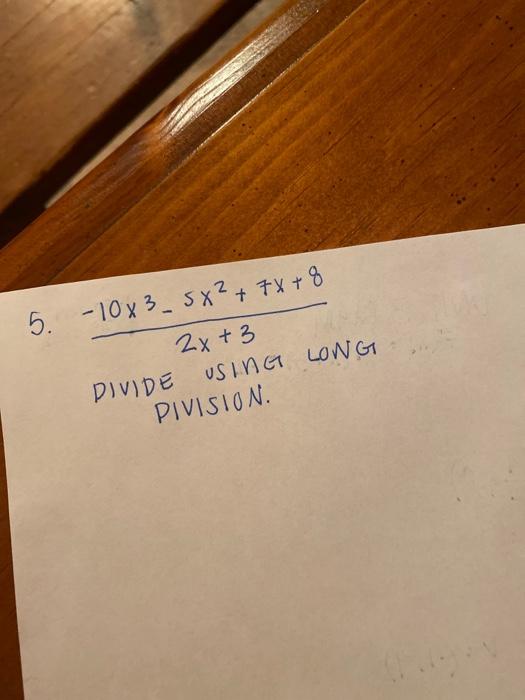 5. -10x³ - 5x² + 7x + 8
2x + 3
DIVIDE USING LONG
DIVISION.